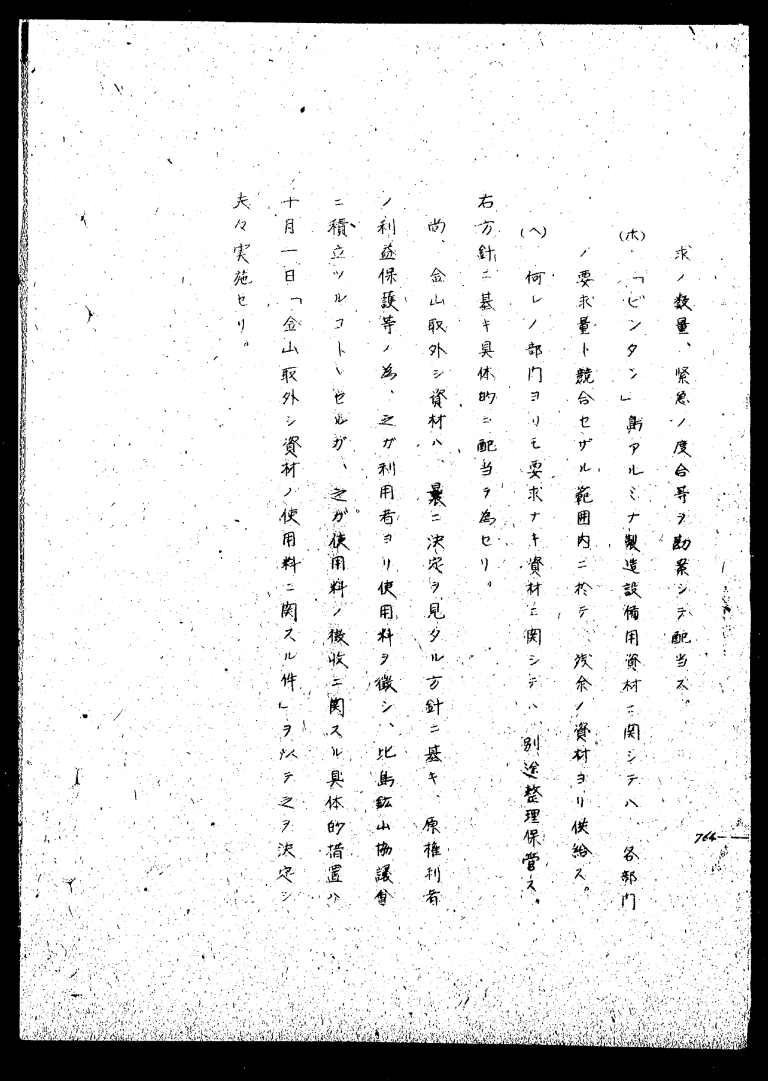 求ノ数量、緊急ノ度合等ヲ勘案シテ配当ス。
(ホ)、「ビンタン」島アルミナ製造設備用資材ニ関シテハ、各部門
ノ要求量ト競合セザル範囲内ニ於テ、残余ノ資材ヨリ供給ス。
(ヘ) 何レノ部門ヨリモ要求ナキ資材ニ関シテハ、別途整理保管ス。
右方針ニ基キ具体的ニ配当ヲ為セリ。
尚、金山取外シ資材ハ、曩ニ決定ヲ見タル方針ニ基キ、原権利者
ノ利益保護等ノ為、之ガ利用者ヨリ使用料ヲ徴シ、比島鉱山協議会
ニ積立ツルコトヽセルガ、之ガ使用料ノ徴收ニ関スル具体的措置ハ
十月一日「金山取外シ資材ノ使用料ニ関スル件」ヲ以テ之ヲ決定シ
夫々実施セリ。
764